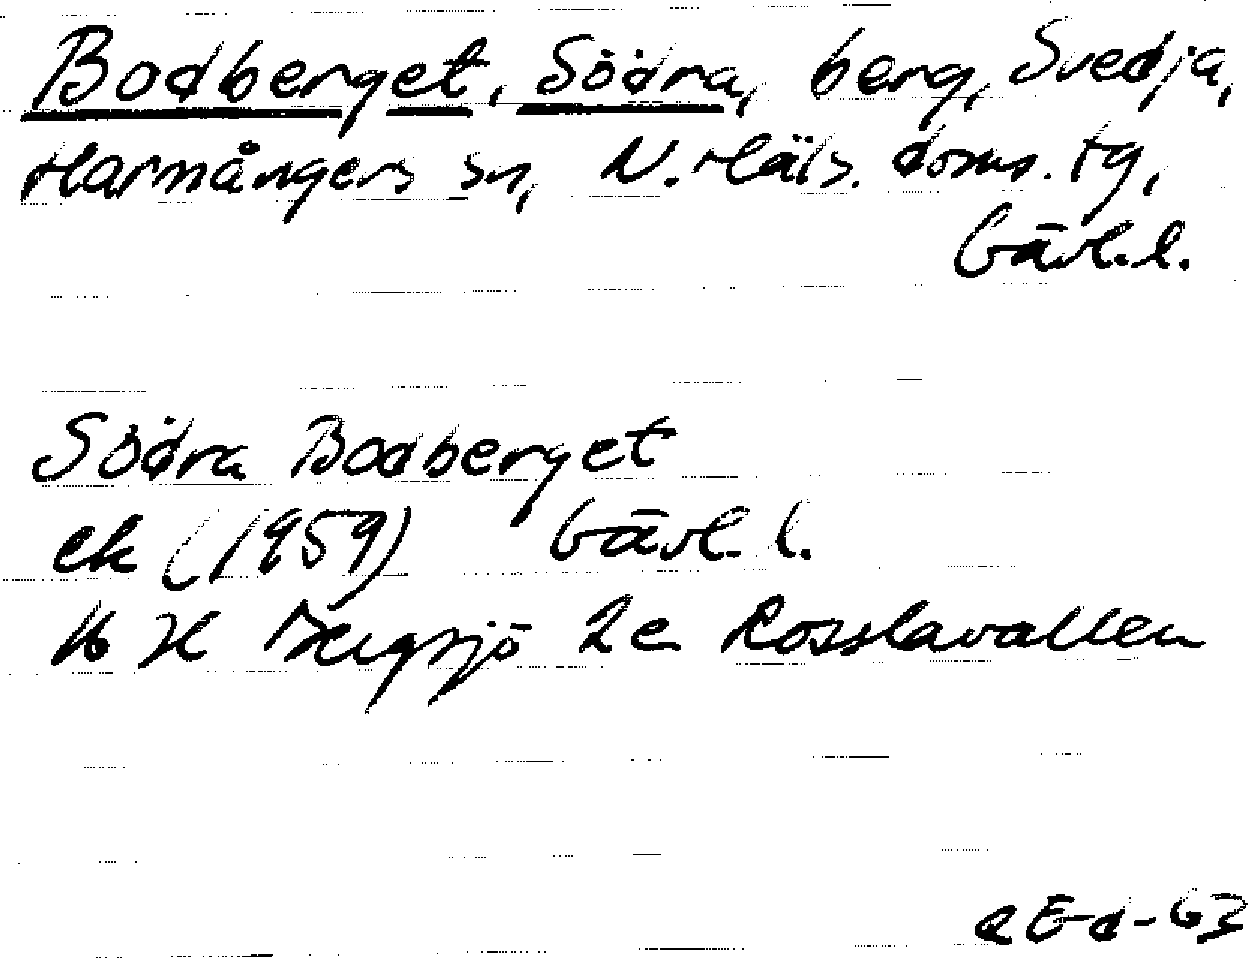 Bodberget, Södra, berg, Svedja,
Harmångers sn, N. Häls. doms. tg,
Gävl. l.
Södra Bodberget
ek (1959) Gävl. l.
16 H Bergsjö 2e Rosslavallen